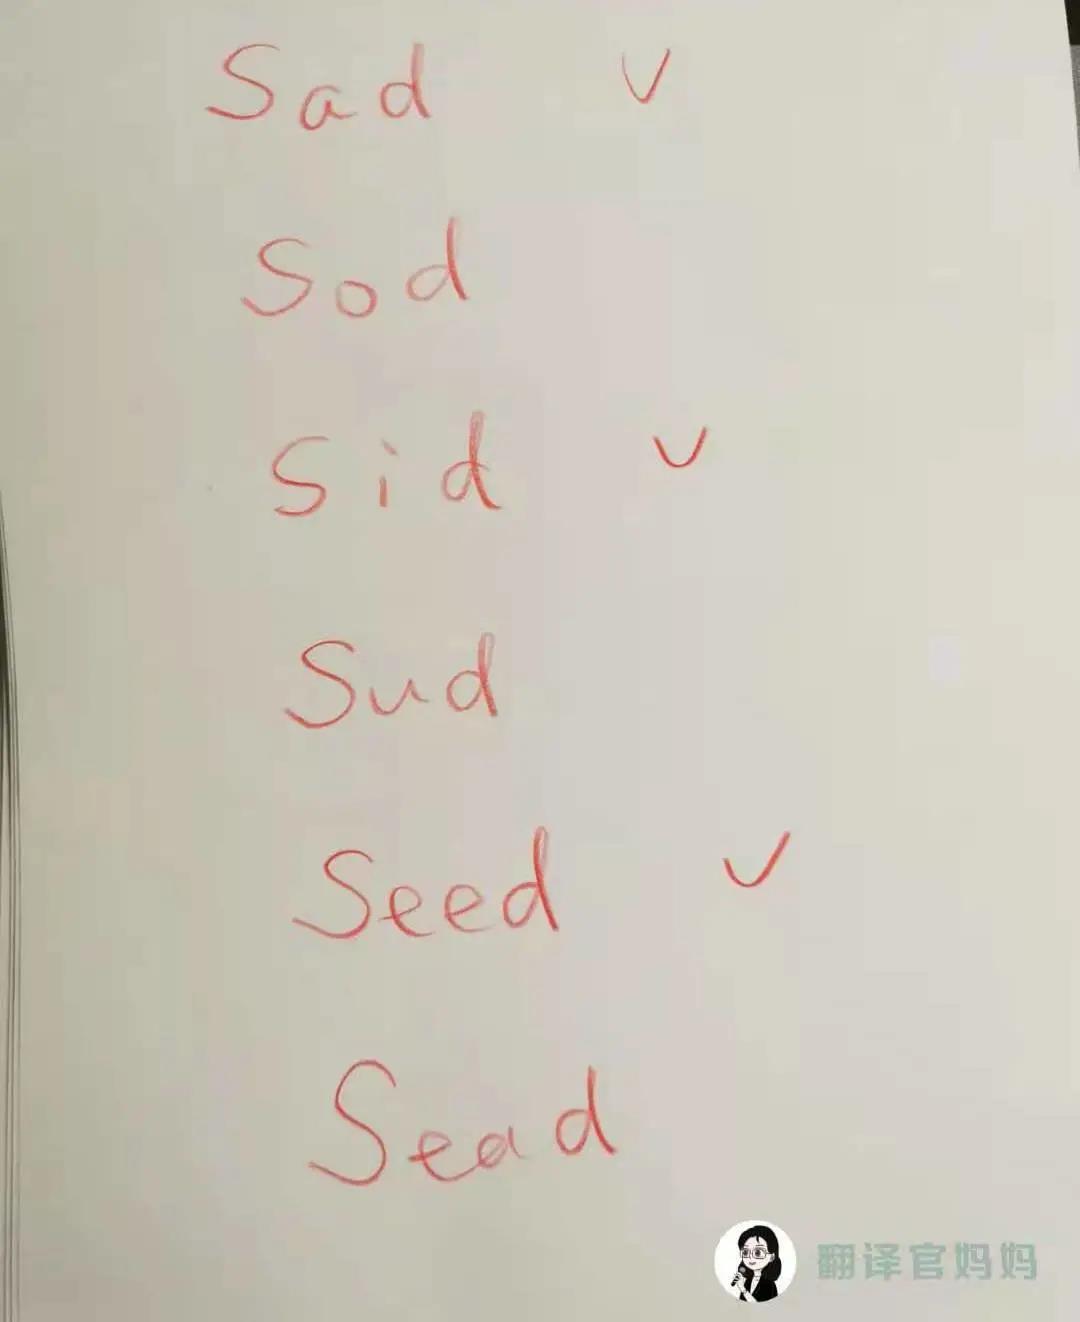 Sad ✓
Sod
Sid ✓
Sud
Seed ✓
Sead
翻译官妈妈